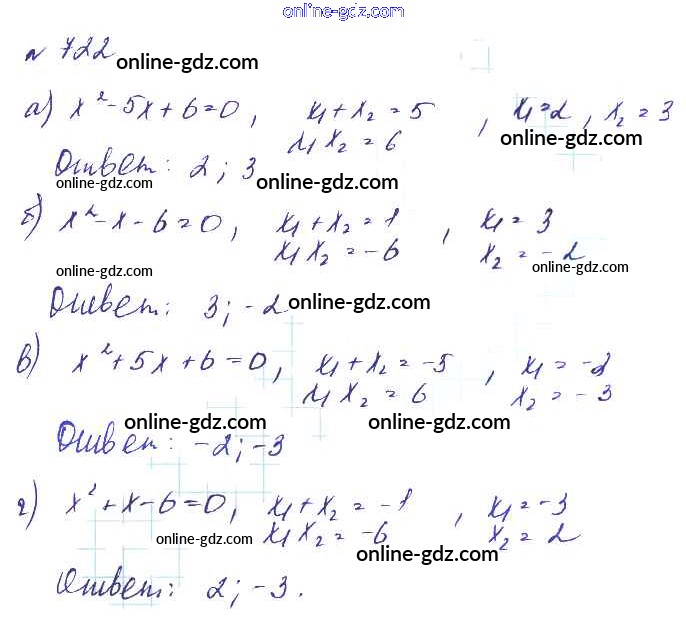 online-gdz.com
№ 722
online-gdz.com
а) x² - 5x + 6 = 0, x₁ + x₂ = 5, x₁ = 2, x₂ = 3
x₁ x₂ = 6
online-gdz.com
Ответ: 2; 3
online-gdz.com online-gdz.com
б) x² - x - 6 = 0, x₁ + x₂ = 1, x₁ = 3
x₁ x₂ = -6 x₂ = -2
online-gdz.com online-gdz.com
Ответ: 3; -2
online-gdz.com
в) x² + 5x + 6 = 0, x₁ + x₂ = -5, x₁ = -2
x₁ x₂ = 6 x₂ = -3
online-gdz.com online-gdz.com
Ответ: -2; -3
г) x² + x - 6 = 0, x₁ + x₂ = -1, x₁ = -3
x₁ x₂ = -6 x₂ = 2
online-gdz.com online-gdz.com
Ответ: 2; -3.